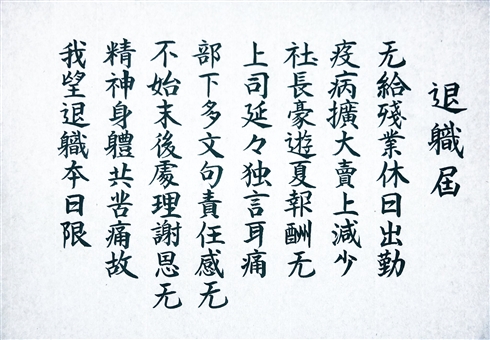 退職屆
无給殘業休日出勤
疫病擴大賣上減少
社長豪遊夏報酬无
上司延々独言耳痛
部下多文句責任感无
不始末後處理謝恩无
精神身軆共苦痛故
我望退職本日限